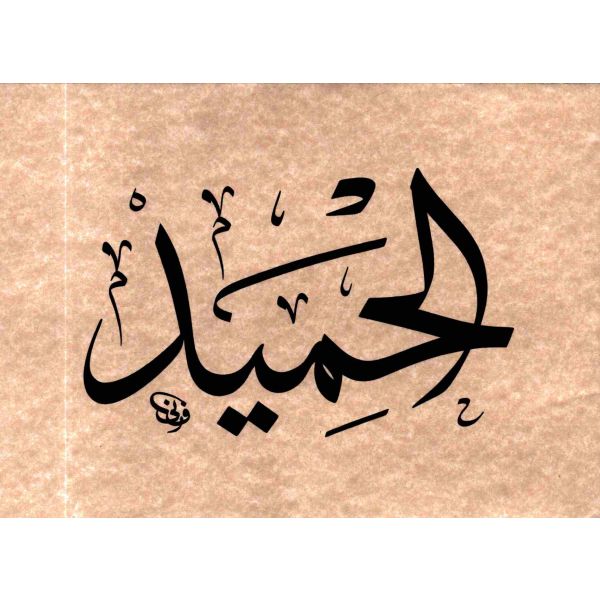 الحَمِيدْ